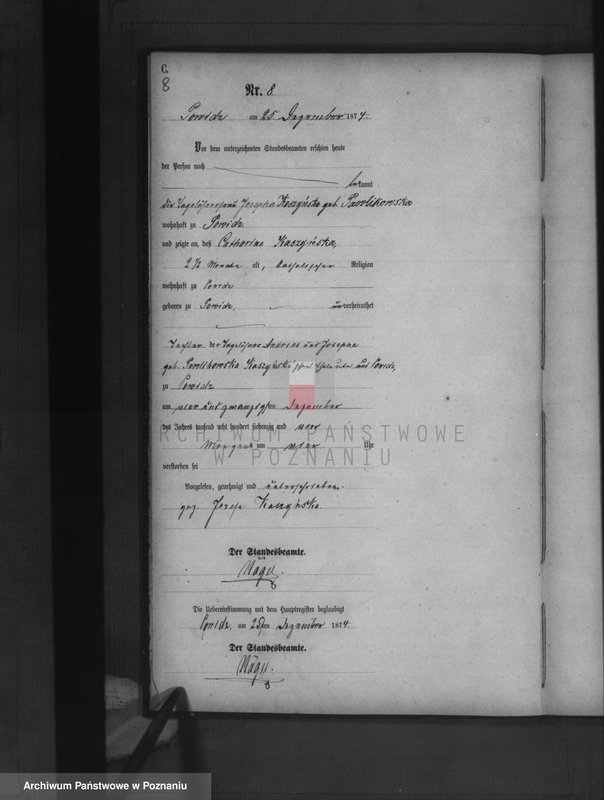 C.
8
Nr. 8
Powidz am 25. Dezember 1874.
Vor dem unterzeichneten Standesbeamten erschien heute
der Person nach
bekannt
die Tagelöhnerfrau Josepha Kaszyńska geb. Pawlikowska
wohnhaft zu Powidz,
und zeigte an, daß Catharina Kaszyńska,
2 ½ Monate alt, katholischer Religion
wohnhaft zu Powidz
geboren zu Powidz, unverheirathet
Tochter der Tagelöhner Andreas und Josepha
geb. Pawlikowska Kaszyński'schen Eheleute aus Powidz,
zu Powidz
am vier und zwanzigsten Dezember
des Jahres tausend acht hundert siebenzig und vier
Morgens um vier Uhr
verstorben sei
Vorgelesen, genehmigt und unterschrieben.
gez. Josefa Kaszyńska.
Der Standesbeamte.
Nägel.
Die Uebereinstimmung mit dem Hauptregister beglaubigt
Powidz, am 25ten Dezember 1874.
Der Standesbeamte.
Nägel.
ARCHIWUM PAŃSTWOWE
W POZNANIU
Archiwum Państwowe w Poznaniu